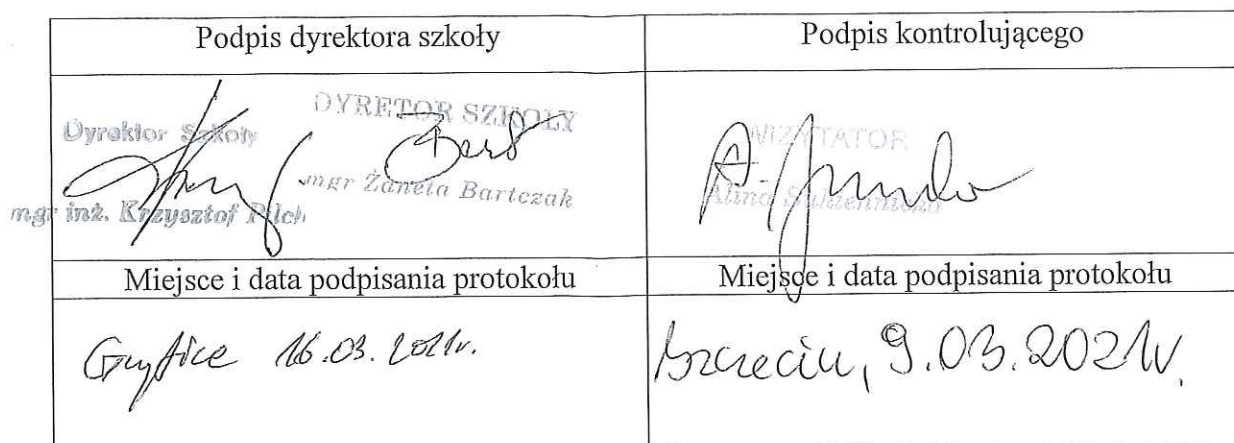 Podpis dyrektora szkoły
Podpis kontrolującego
Dyrektor Szkoły
mgr inż. Krzysztof Pilch
DYRETOR SZKOŁY
mgr Żaneta Bartczak
WIZYTATOR
Alina
Miejsce i data podpisania protokołu
Miejsce i data podpisania protokołu
Gryfice 16.03.2021r.
Szczecin, 9.03.2021r.